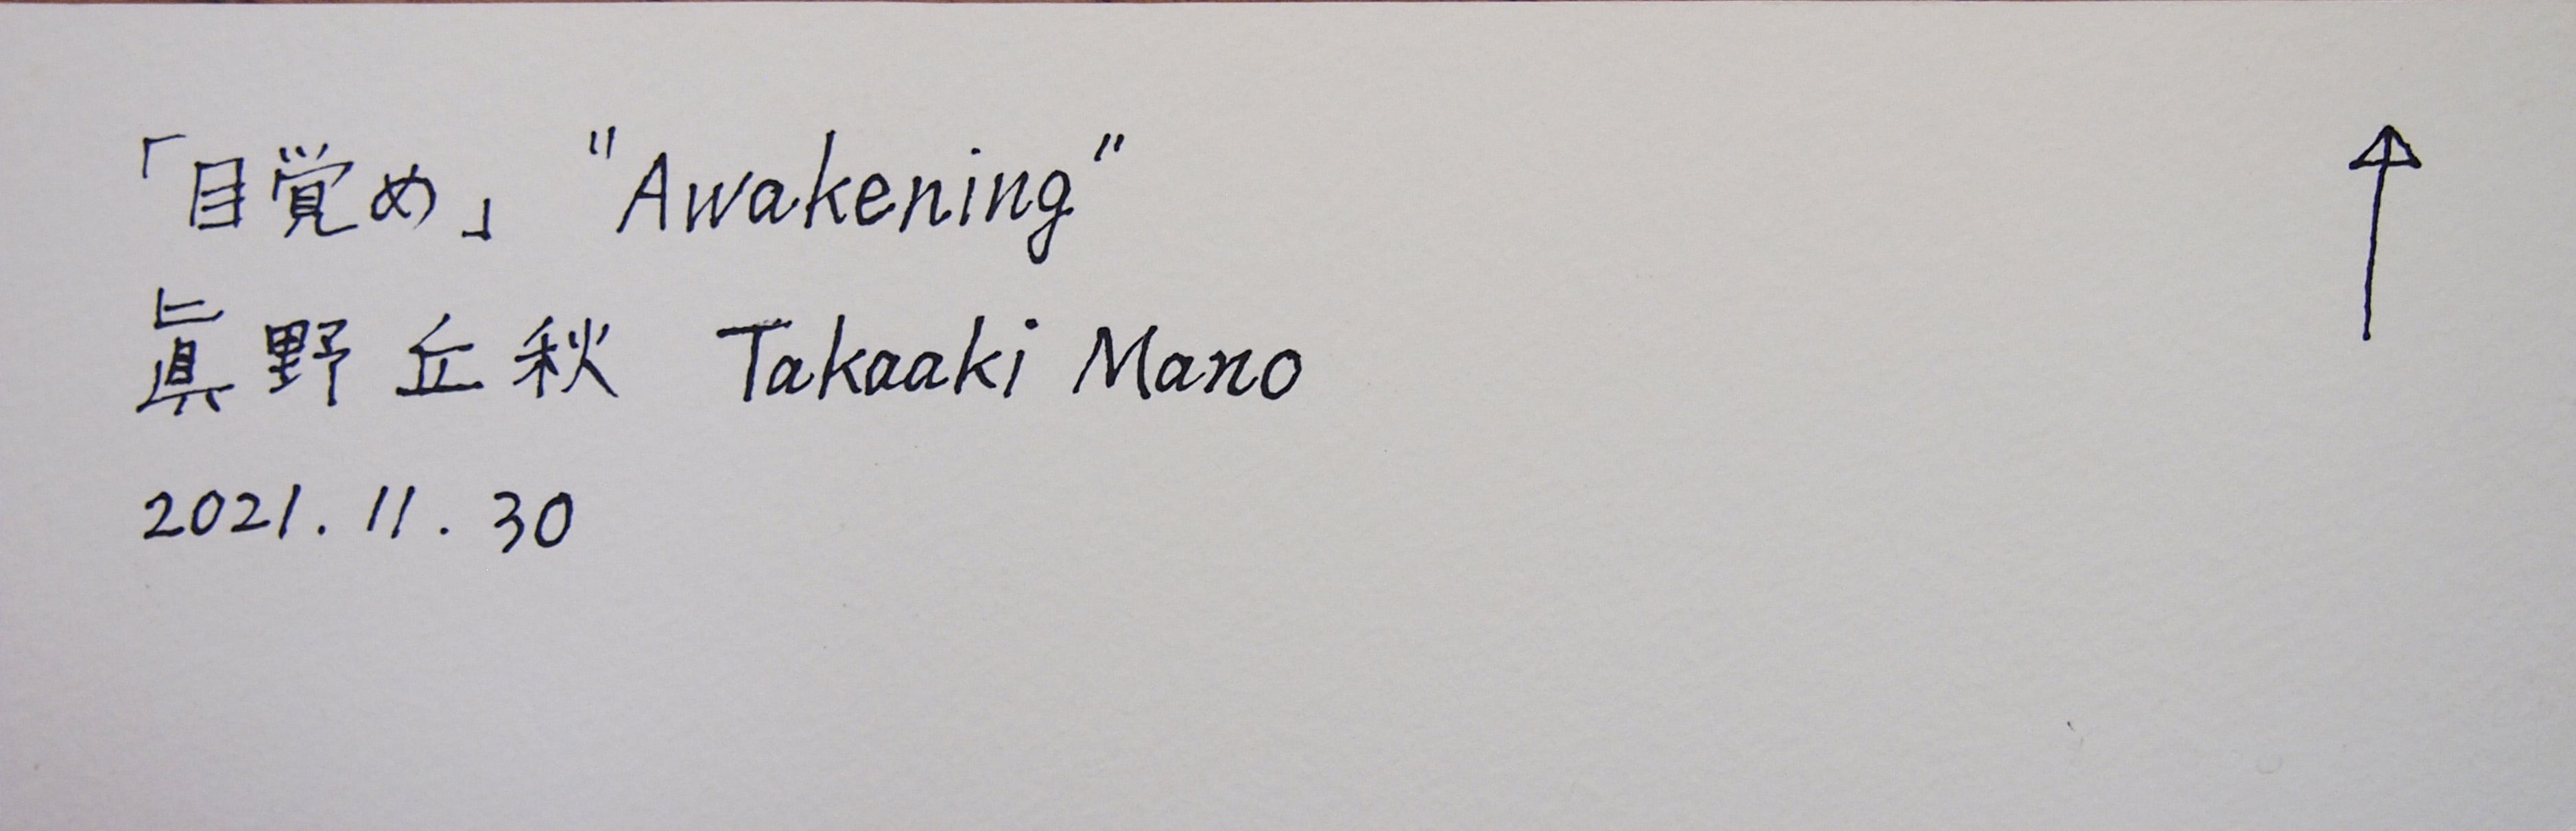 「目覚め」 "Awakening"
眞野丘秋 Takaaki Mano
2021. 11. 30